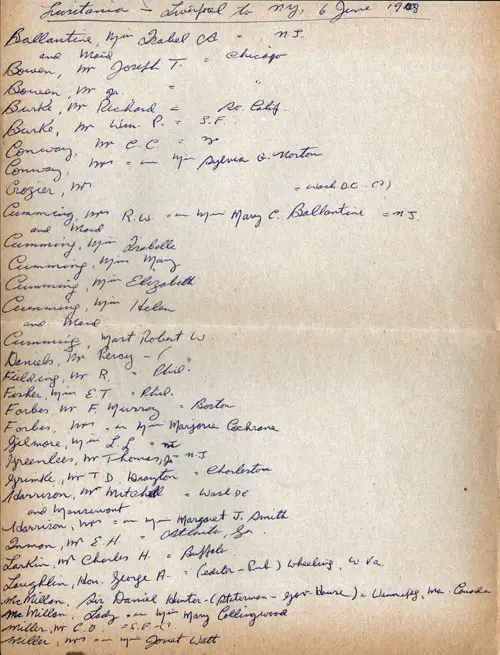 Lusitania - Liverpool to N.Y. 6 June 1908
Ballantine, Miss Isabel A = N.J.
and Maid
Bowen, Mr Joseph T. = Chicago
Bowen, Mr Jr. = "
Burke, Mr Richard = So. Calif.
Burke, Mr Wm. P. = S.F.
Conway, Mr C. C. =
Conway, Mrs = nee Miss Sylvia G. Norton
Crozier, Mr = Wash D.C. (?)
Cumming, Mrs R.W. = nee Miss Mary C. Ballantine = N.J.
and Maid
Cumming, Miss Isabelle
Cumming, Miss Mary
Cumming, Miss Elizabeth
Cumming, Miss Helen
and Maid
Cumming, Mast Robert W
Daniels, Mr Percy -
Fielding, Mr R. = Phil.
Fisher, Miss E.T. = Phil.
Forbes, Mr F. Murray = Boston
Forbes, Mrs = nee Miss Marjorie Cochrane
Gilmore, Miss L.L =
Greenlees, Mr Thomas, Jr = N.J
Grimke, Mr T. D. Drayton = Charleston
Harrison, Mr Mitchell = Wash DC
and Manservant
Harrison, Mrs = nee Miss Margaret J. Smith
Inman, Mr E. H = Atlanta, Ga.
Larkin, Mr Charles H. = Buffalo
Laughlin, Hon. George A. = (editor-Pub) Wheeling, W. Va.
McMillan, Sir Daniel Hunter - (Statesman - Gov. House) = Winnipeg, Man Canada
McMillan, Lady = nee Miss Mary Collingwood
Miller, Mr C.O. = S.F.
Miller, Mrs = nee Miss Janet Watt